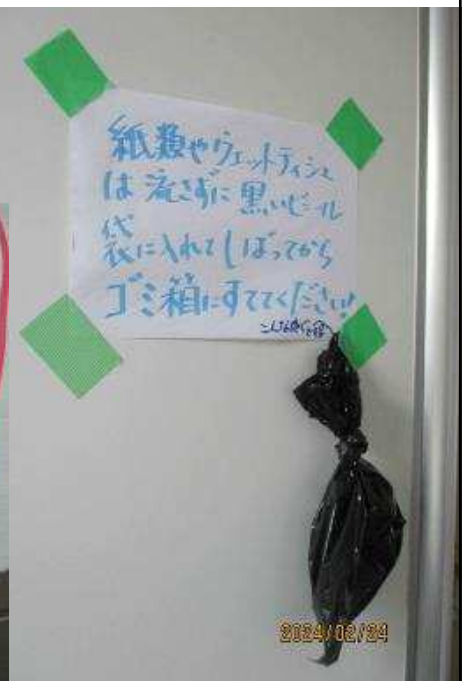 紙類やウェットティシュ
は流さずに黒いビニール
袋に入れてしばってから
ゴミ箱にすててください!
こんな感じで
2024/02/24